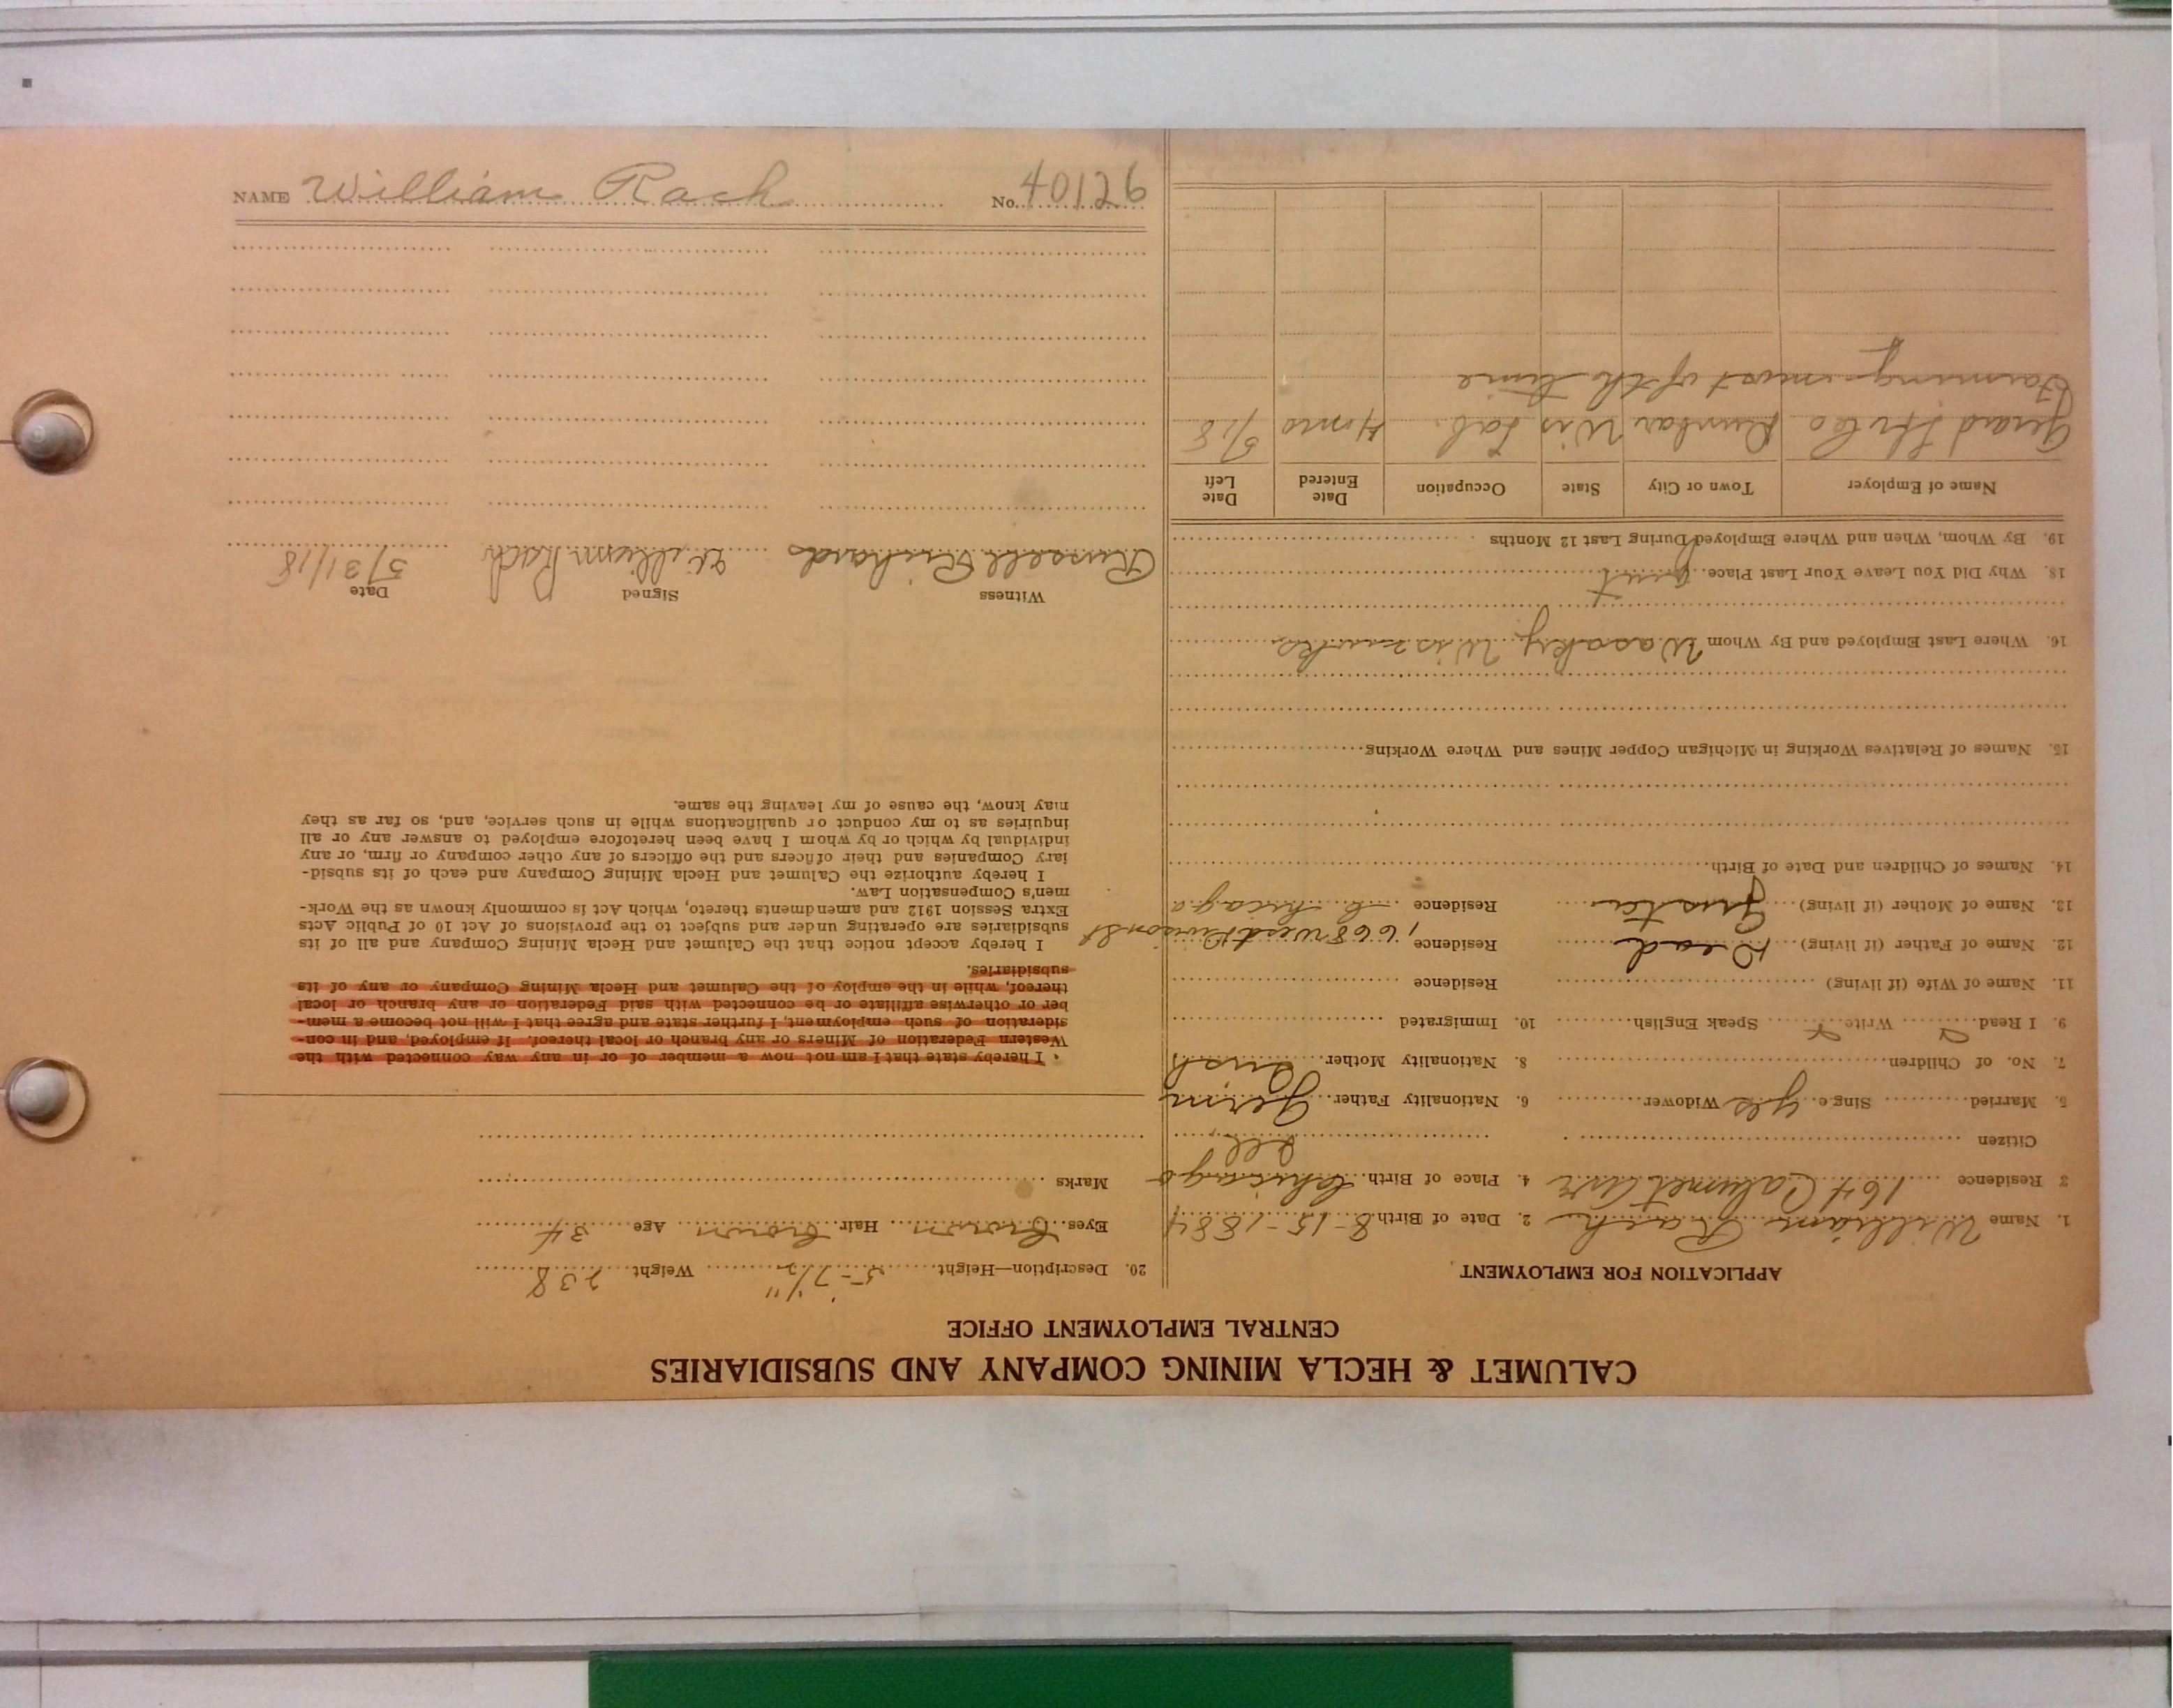 CALUMET & HECLA MINING COMPANY AND SUBSIDIARIES
CENTRAL EMPLOYMENT OFFICE
APPLICATION FOR EMPLOYMENT
1. Name William Rach 2. Date of Birth 8-15-1884
3 Residence 164 Calumet Ave 4. Place of Birth Chicago
Ill
Citizen
5. Married Single yes Widower 6. Nationality Father Germ
7. No. of Children 8. Nationality Mother
9. I Read Write Speak English 10. Immigrated
11. Name of Wife (if living) Residence
12. Name of Father (if living) Dead Residence 1668 West Division St
13. Name of Mother (if living) Residence Chicago
14. Names of Children and Date of Birth
15. Names of Relatives Working in Michigan Copper Mines and Where Working
16. Where Last Employed and By Whom Wis
18. Why Did You Leave Your Last Place Quit
19. By Whom, When and Where Employed During Last 12 Months
Name of Employer Town or City State Occupation Date Entered Date Left
Dunbar Wis Lab. 4 mos 5/18
Farming most of the time
20. Description—Height 5-7 1/2" Weight 238
Eyes brown Hair brown Age 34
Marks
I hereby state that I am not now a member of or in any way connected with the
Western Federation of Miners or any branch or local thereof. If employed, and in con-
sideration of such employment, I further state and agree that I will not become a mem-
ber or otherwise affiliate or be connected with said Federation or any branch or local
thereof, while in the employ of the Calumet and Hecla Mining Company or any of its
subsidiaries.
I hereby accept notice that the Calumet and Hecla Mining Company and all of its
subsidiaries are operating under and subject to the provisions of Act 10 of Public Acts
Extra Session 1912 and amendments thereto, which Act is commonly known as the Work-
men's Compensation Law.
I hereby authorize the Calumet and Hecla Mining Company and each of its subsid-
iary Companies and their officers and the officers of any other company or firm, or any
individual by which or by whom I have been heretofore employed to answer any or all
inquiries as to my conduct or qualifications while in such service, and, so far as they
may know, the cause of my leaving the same.
Witness Signed Date
Russell Richards William Rach 5/31/18
NAME William Rach No. 40126